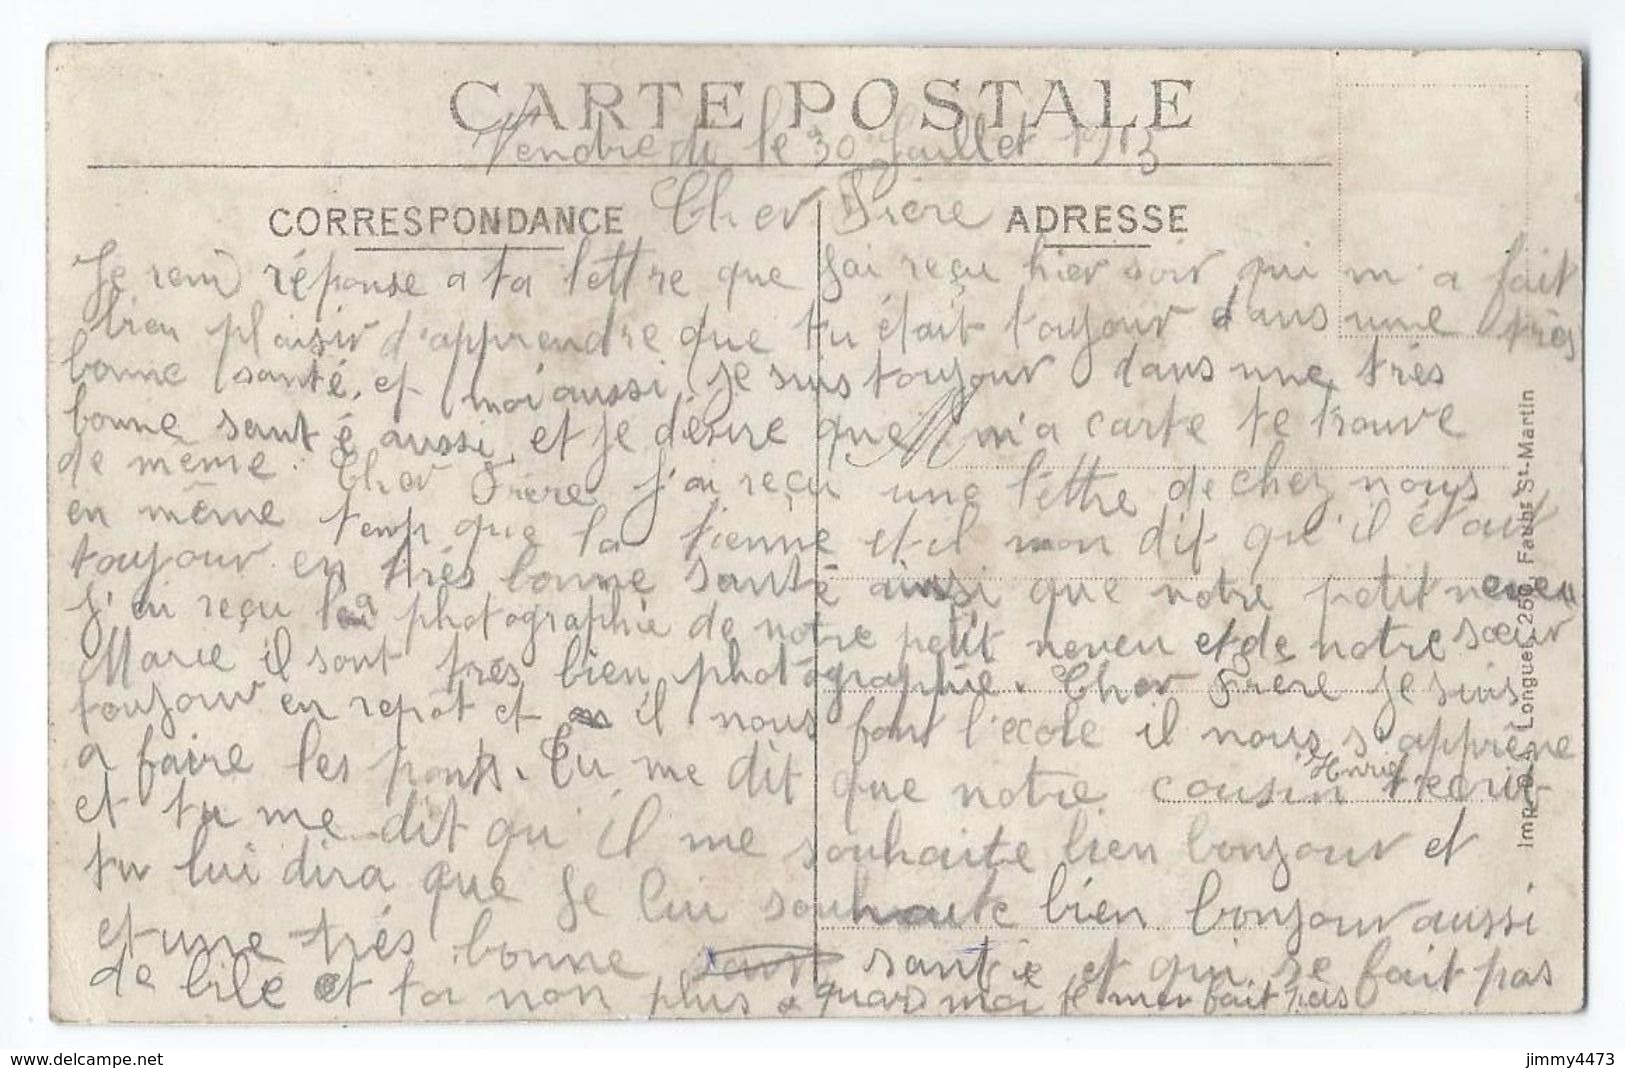 CARTE POSTALE
Vendredi le 30 Juillet 1915
CORRESPONDANCE
Cher Frère
ADRESSE
Je reng réponse a ta lettre que j'ai reçu hier soir qui m'a fait
bien plaisir d'apprendre que tu était toujour dans une très
bonne santé. et moi aussi je suis toujour dans une très
bonne santé aussi et je désire que m'a carte te trouve
de même. Cher Frère j'ai reçu une lettre de chez nous
en même temp que la tienne et il mon dit qu'il était
toujour en très bonne santé ainsi que notre petit neveu
J'ai reçu la photographie de notre petit neveu et de notre sœur
Marie il sont très bien photographie. Cher Frère je suis
toujour en repôt et il nous font l'école il nous s'apprêne
a faire les ponts. Tu me dit que notre cousin Henri t'ecrit
et tu me dit qu'il me souhaite bien bonjour et
tu lui dira que je lui souhaite bien bonjour aussi
et une très bonne santé et qui se fait pas
de bile et toi non plus quar moi je men fait pas
Imp. Longuet 250, Faubg St-Martin
www.delcampe.net
jimmy4473